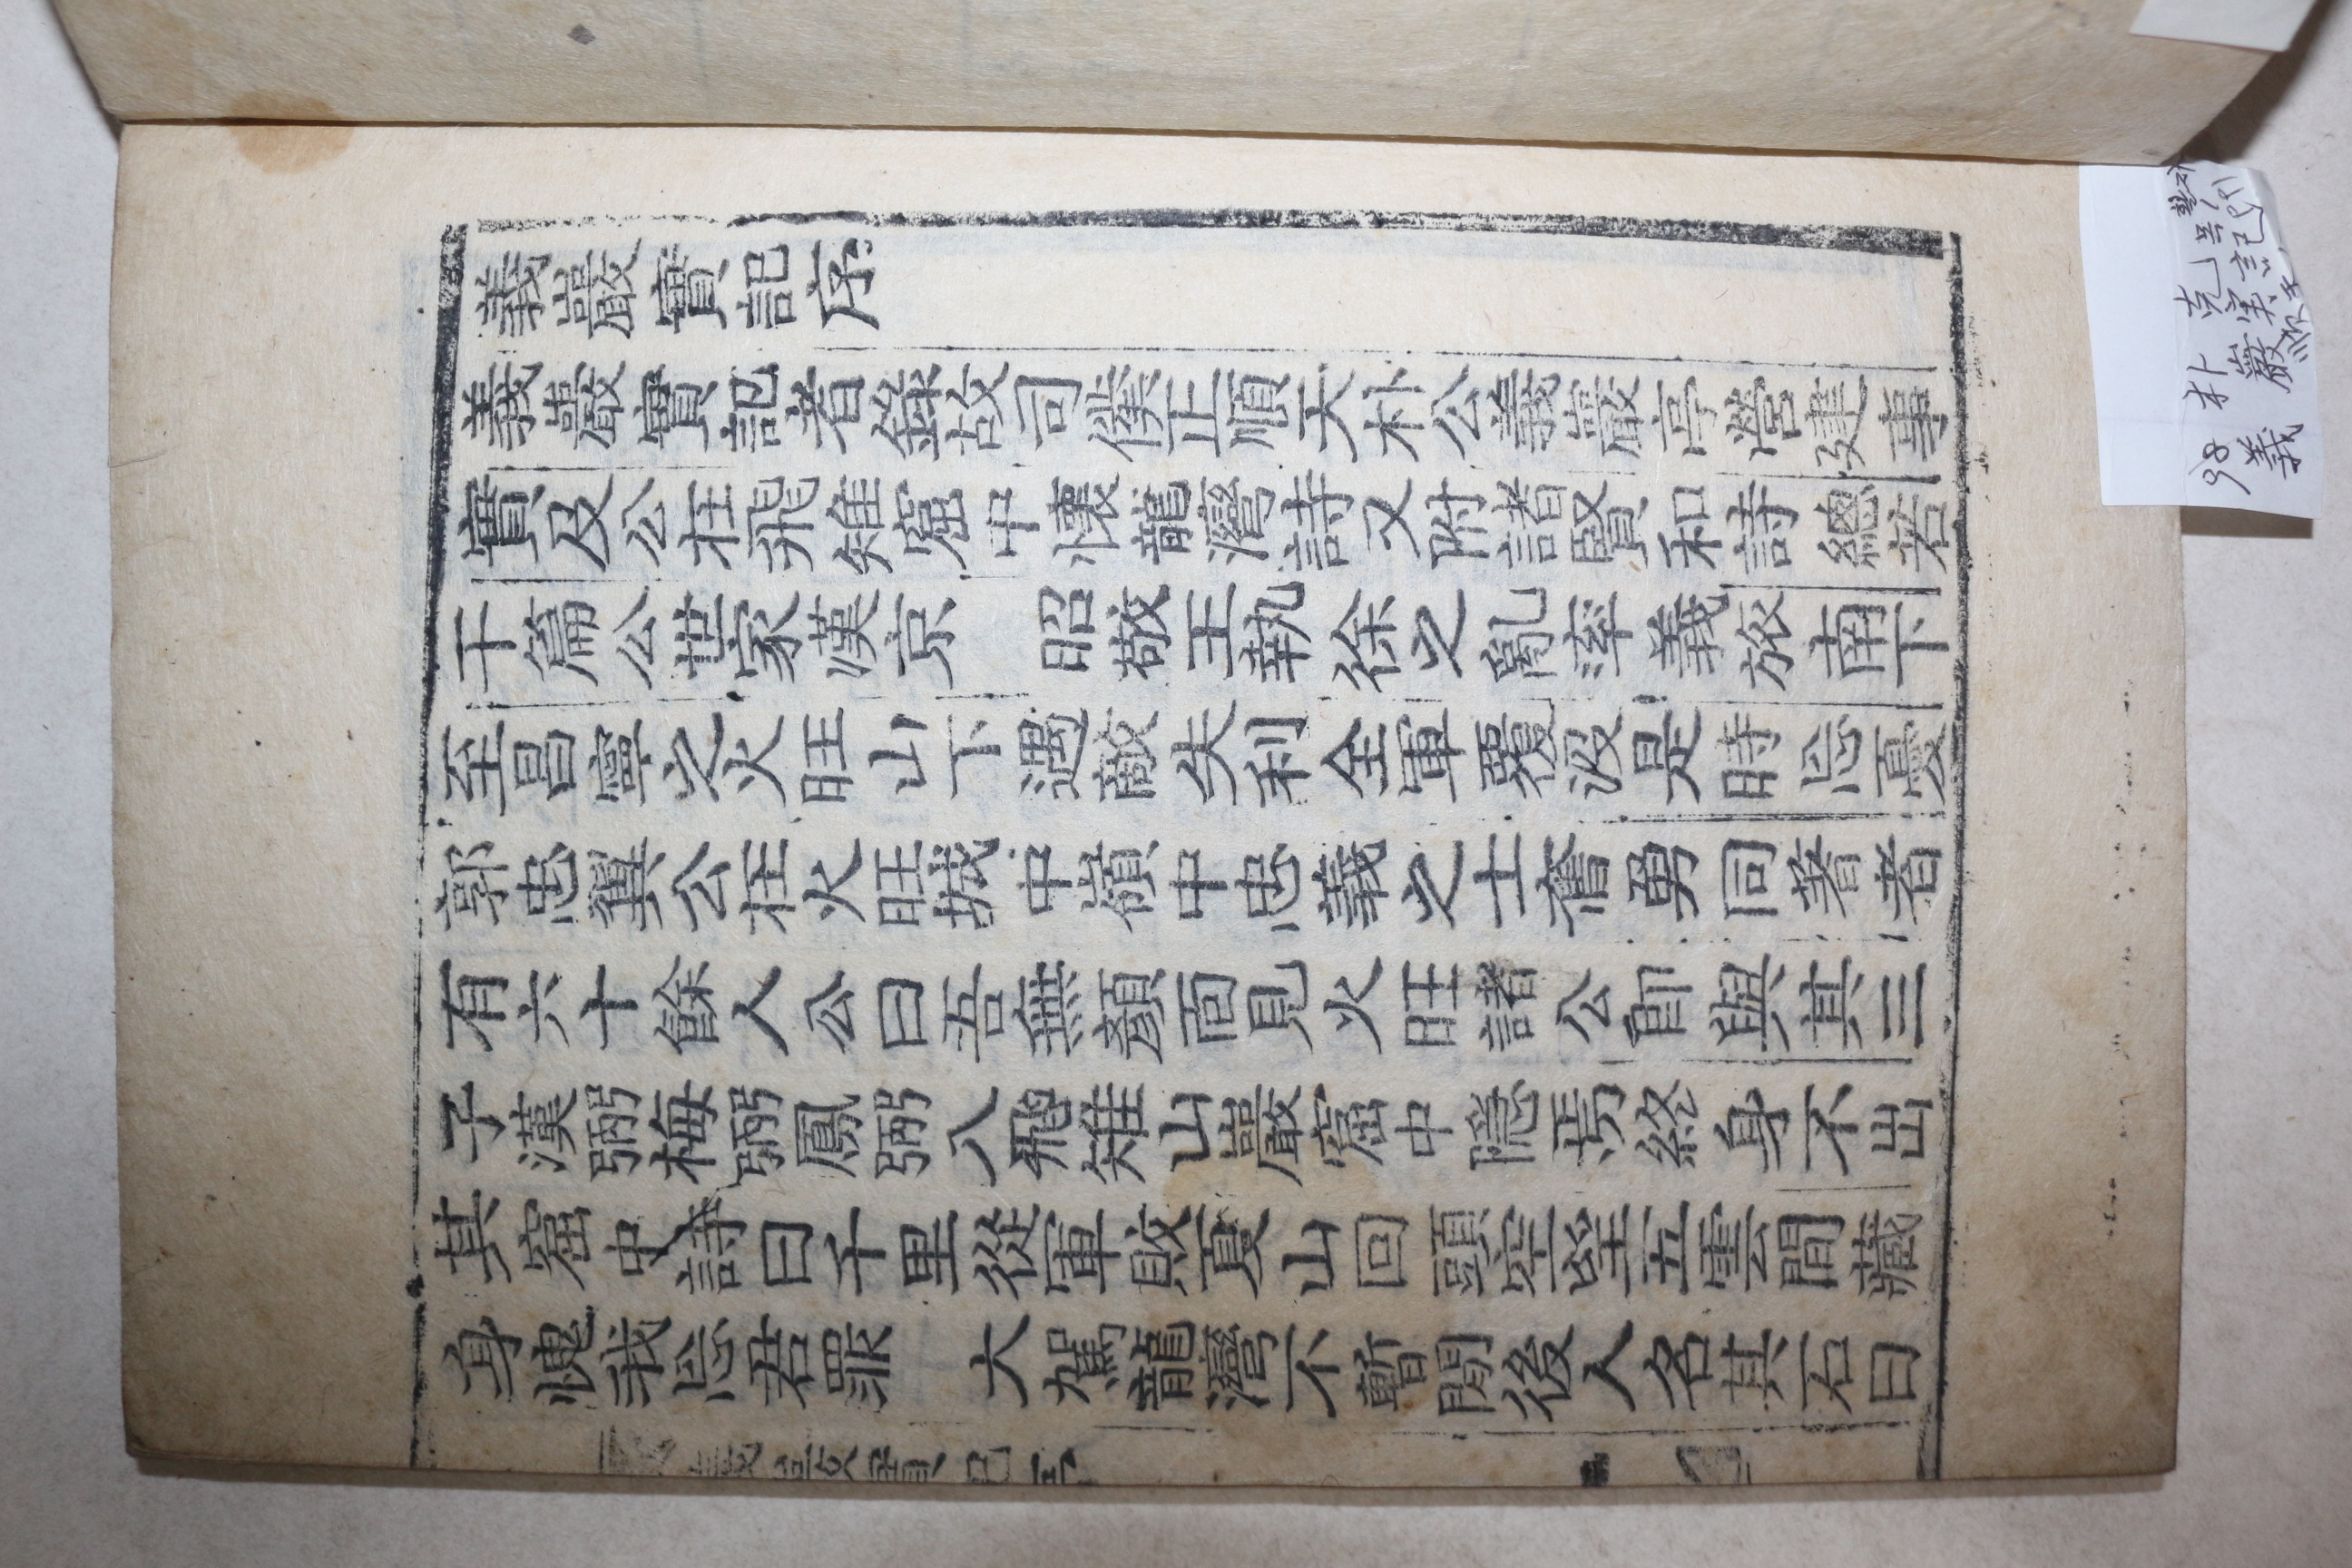 義巖實記序
義巖實記者錄故司僕正順天朴公義巖亭營建事
實及公在飛雉窟中懷龍灣詩又附諸賢和詩總若
干篇公世家漢京 昭敬王執徐之亂率義旅南下
至昌寧之火旺山下遇敵失利全軍覆沒是時忘憂
郭忠翼公在火旺城中嶺中忠義之士奮勇同著者
有六十餘人公曰吾無顏面見火旺諸公卽與其三
子漢弼梅弼鳳弼入飛雉山巖窟中隱焉終身不出
其窟中詩曰千里從軍敗夏山回頭空望五雲間藏
身愧我忘君罪 大駕龍灣不暫閒後人名其石曰
98 朴
義巖實記